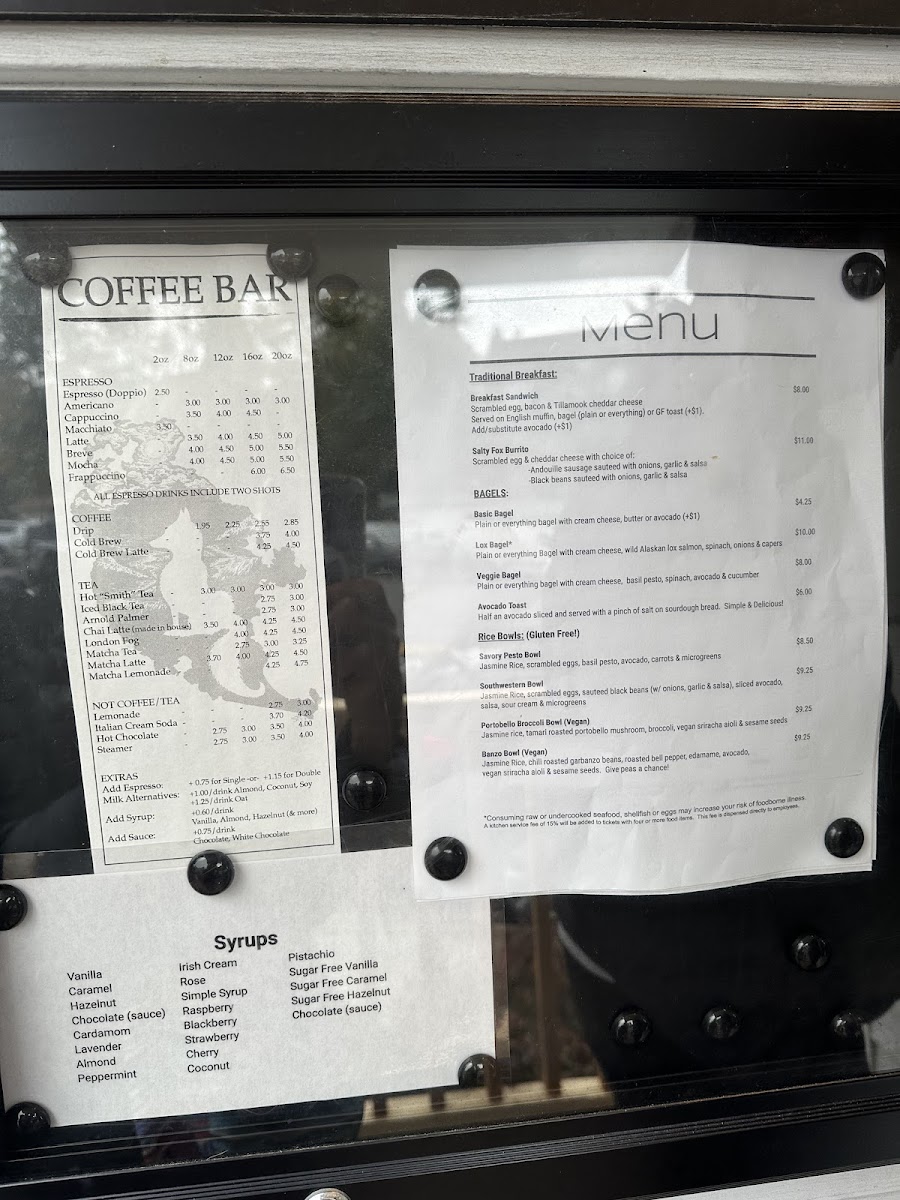 COFFEE BAR
2oz 8oz 12oz 16oz 20oz
ESPRESSO
Espresso (Doppio) 2.50 - - - -
Americano - 3.00 3.00 3.00 3.00
Cappuccino - 3.50 4.00 4.50 -
Macchiato 3.50 - - - -
Latte - 3.50 4.00 4.50 5.00
Breve - 4.00 4.50 5.00 5.50
Mocha - 4.00 4.50 5.00 5.50
Frappuccino - - - 6.00 6.50
ALL ESPRESSO DRINKS INCLUDE TWO SHOTS
COFFEE
Drip - 1.95 2.25 2.55 2.85
Cold Brew - - - 3.75 4.00
Cold Brew Latte - - - 4.25 4.50
TEA
Hot "Smith" Tea - 3.00 3.00 3.00 3.00
Iced Black Tea - - - 2.75 3.00
Arnold Palmer - - - 2.75 3.00
Chai Latte (made in house) 3.50 4.00 4.25 4.50
London Fog - - 4.00 4.25 4.50
Matcha Tea - - 2.75 3.00 3.25
Matcha Latte - 3.70 4.00 4.25 4.50
Matcha Lemonade - - - 4.25 4.75
NOT COFFEE/TEA
Lemonade - - - 2.75 3.00
Italian Cream Soda - - - 3.70 4.20
Hot Chocolate - 2.75 3.00 3.50 4.00
Steamer - 2.75 3.00 3.50 4.00
EXTRAS
Add Espresso: + 0.75 for Single -or- +1.15 for Double
Milk Alternatives: +1.00/drink Almond, Coconut, Soy
+1.25/drink Oat
Add Syrup: +0.60/drink
Vanilla, Almond, Hazelnut (& more)
Add Sauce: +0.75/drink
Chocolate, White Chocolate
Menu
Traditional Breakfast:
Breakfast Sandwich $8.00
Scrambled egg, bacon & Tillamook cheddar cheese
Served on English muffin, bagel (plain or everything) or GF toast (+$1).
Add/substitute avocado (+$1)
Salty Fox Burrito $11.00
Scrambled egg & cheddar cheese with choice of:
-Andouille sausage sauteed with onions, garlic & salsa
-Black beans sauteed with onions, garlic & salsa
BAGELS:
Basic Bagel $4.25
Plain or everything bagel with cream cheese, butter or avocado (+$1)
Lox Bagel* $10.00
Plain or everything Bagel with cream cheese, wild Alaskan lox salmon, spinach, onions & capers
Veggie Bagel $8.00
Plain or everything bagel with cream cheese, basil pesto, spinach, avocado & cucumber
Avocado Toast $6.00
Half an avocado sliced and served with a pinch of salt on sourdough bread. Simple & Delicious!
Rice Bowls: (Gluten Free!)
Savory Pesto Bowl $8.50
Jasmine Rice, scrambled eggs, basil pesto, avocado, carrots & microgreens
Southwestern Bowl $9.25
Jasmine Rice, scrambled eggs, sauteed black beans (w/ onions, garlic & salsa), sliced avocado,
salsa, sour cream & microgreens
Portobello Broccoli Bowl (Vegan) $9.25
Jasmine rice, tamari roasted portobello mushroom, broccoli, vegan sriracha aioli & sesame seeds
Banzo Bowl (Vegan) $9.25
Jasmine Rice, chili roasted garbanzo beans, roasted bell pepper, edamame, avocado,
vegan sriracha aioli & sesame seeds. Give peas a chance!
*Consuming raw or undercooked seafood, shellfish or eggs may increase your risk of foodborne illness.
A kitchen service fee of 15% will be added to tickets with four or more food items. This fee is dispensed directly to employees.
Syrups
Vanilla
Caramel
Hazelnut
Chocolate (sauce)
Cardamom
Lavender
Almond
Peppermint
Irish Cream
Rose
Simple Syrup
Raspberry
Blackberry
Strawberry
Cherry
Coconut
Pistachio
Sugar Free Vanilla
Sugar Free Caramel
Sugar Free Hazelnut
Chocolate (sauce)